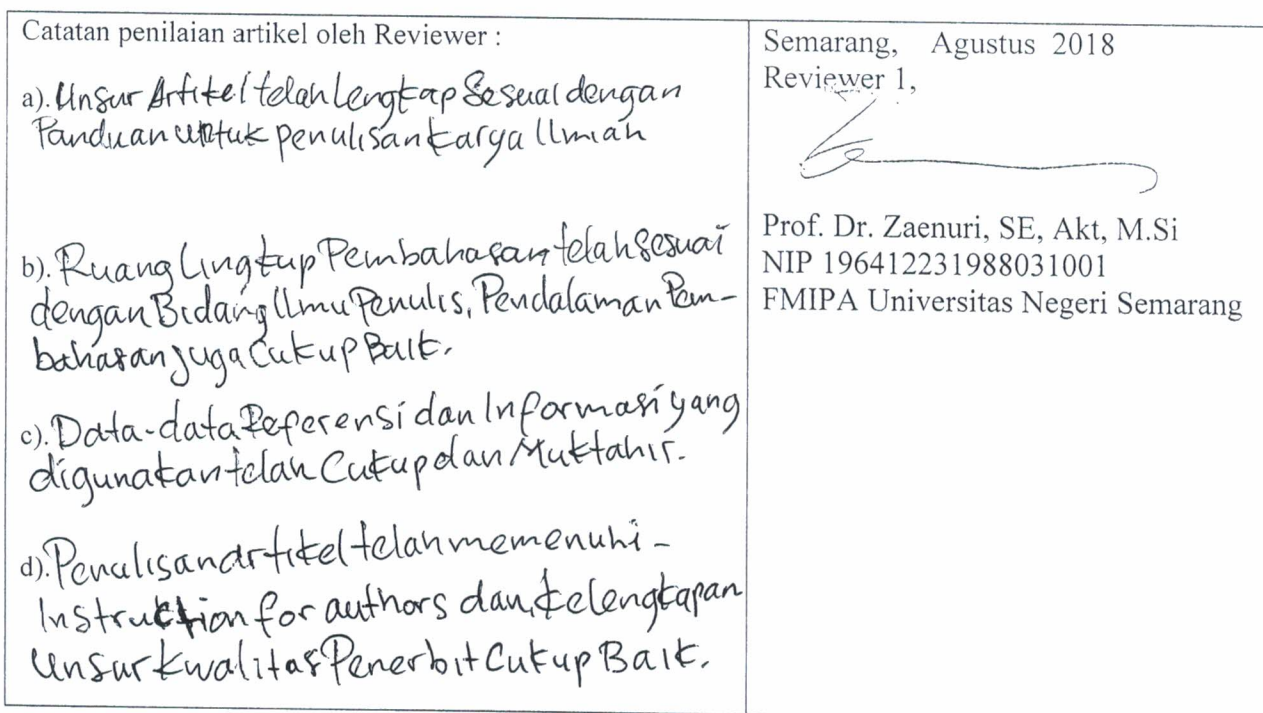 Catatan penilaian artikel oleh Reviewer :
a). Unsur Artikel telah lengkap sesuai dengan
Panduan untuk penulisan karya Ilmiah
b). Ruang Lingkup Pembahasan telah sesuai
dengan Bidang Ilmu Penulis, Pendalaman Pem-
bahasan juga Cukup Baik.
c). Data-data Referensi dan Informasi yang
digunakan telah Cukup dan Muktahir.
d). Penulisan artikel telah memenuhi -
Instruktion for authors dan, kelengkapan
Unsur kwalitas Penerbit Cukup Baik.
Semarang, Agustus 2018
Reviewer 1,
Prof. Dr. Zaenuri, SE, Akt, M.Si
NIP 196412231988031001
FMIPA Universitas Negeri Semarang